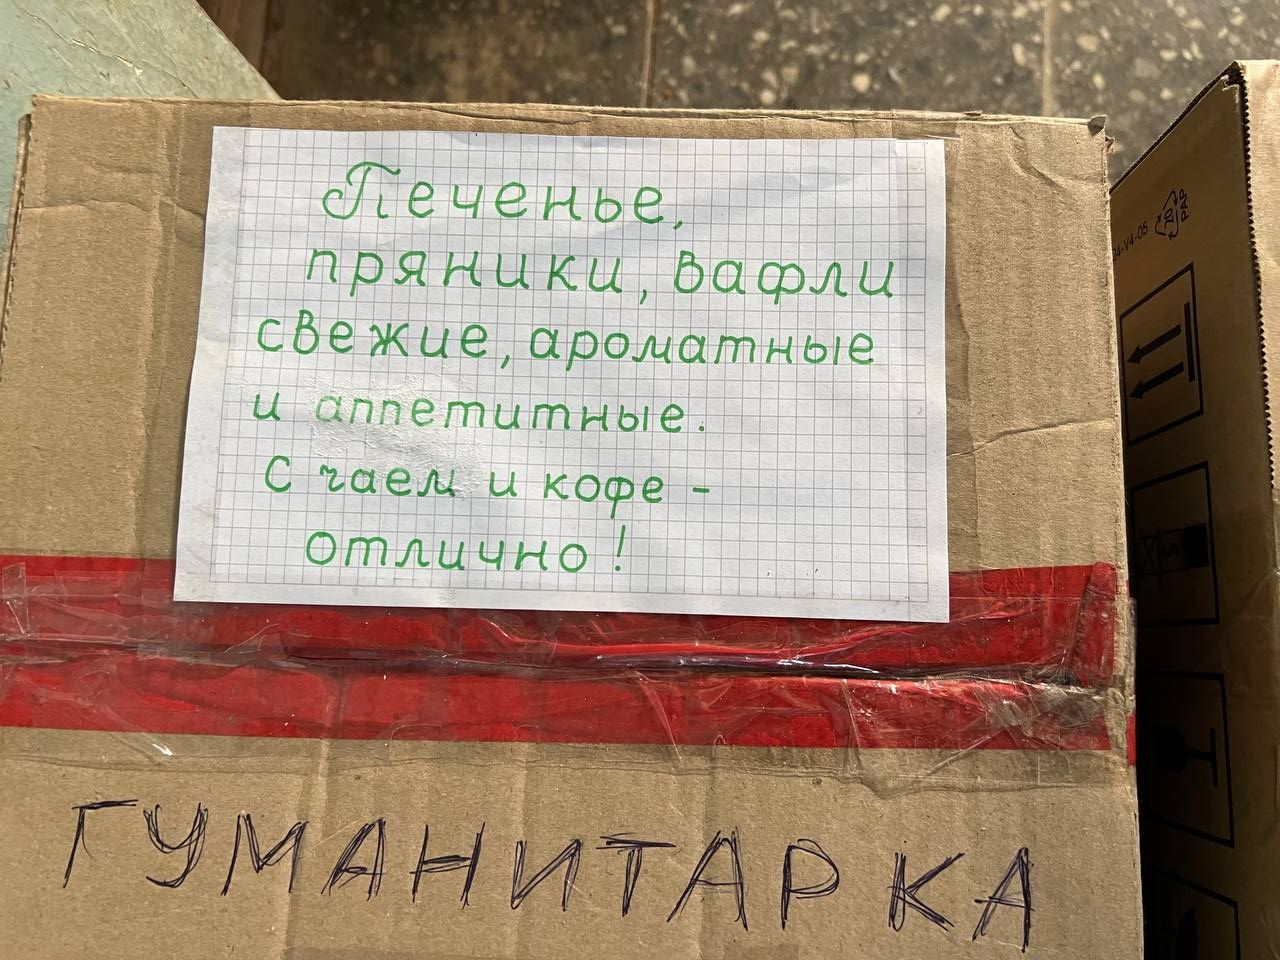 Печенье,
пряники, вафли
свежие, ароматные
и аппетитные.
С чаем и кофе -
отлично!
ГУМАНИТАРКА
20
PAP